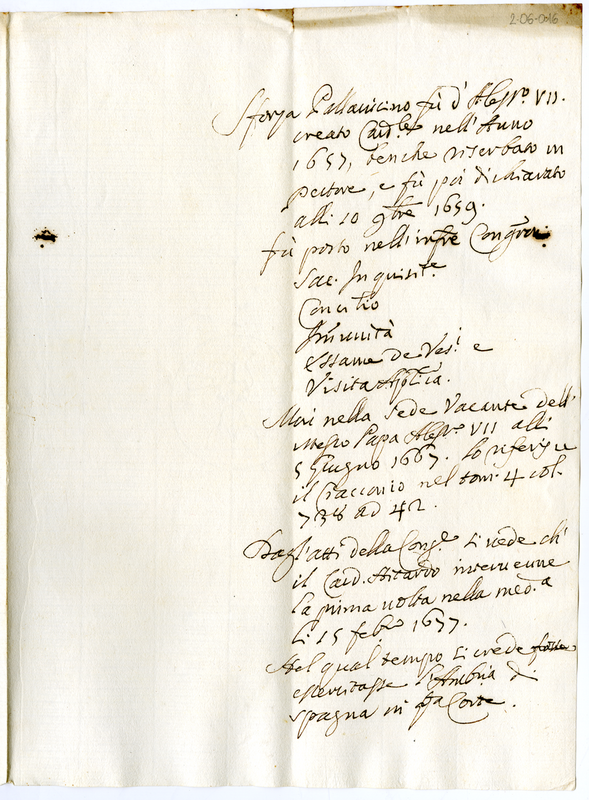 2-06-016
Sforza Pallavicino fù d'Aless.º VII.
creato Card.le nell'Anno
1657, benche riserbato in
Pectore, e fù poi dichiarato
alli 10 9bre 1659.
fù posto nell'infre Congreg.ni
Sac. Inquisit.e
Concilio
Immunità
Essame de Ves.i e
Visita Aplica.
Morì nella Sede Vacante dell'
istesso Papa Aless.º VII alli
5 Giugno 1667. Lo riferisce
il Ciacconio nel tom. 4 col.
738 ad 42.
Dagl'atti della Cong.e si vede ch'
il Card. intervenne
la prima volta nella med.a
li 15 feb.o 1677.
Nel qual tempo si crede
esercitasse l'Ambria di
Spagna in qta Corte.